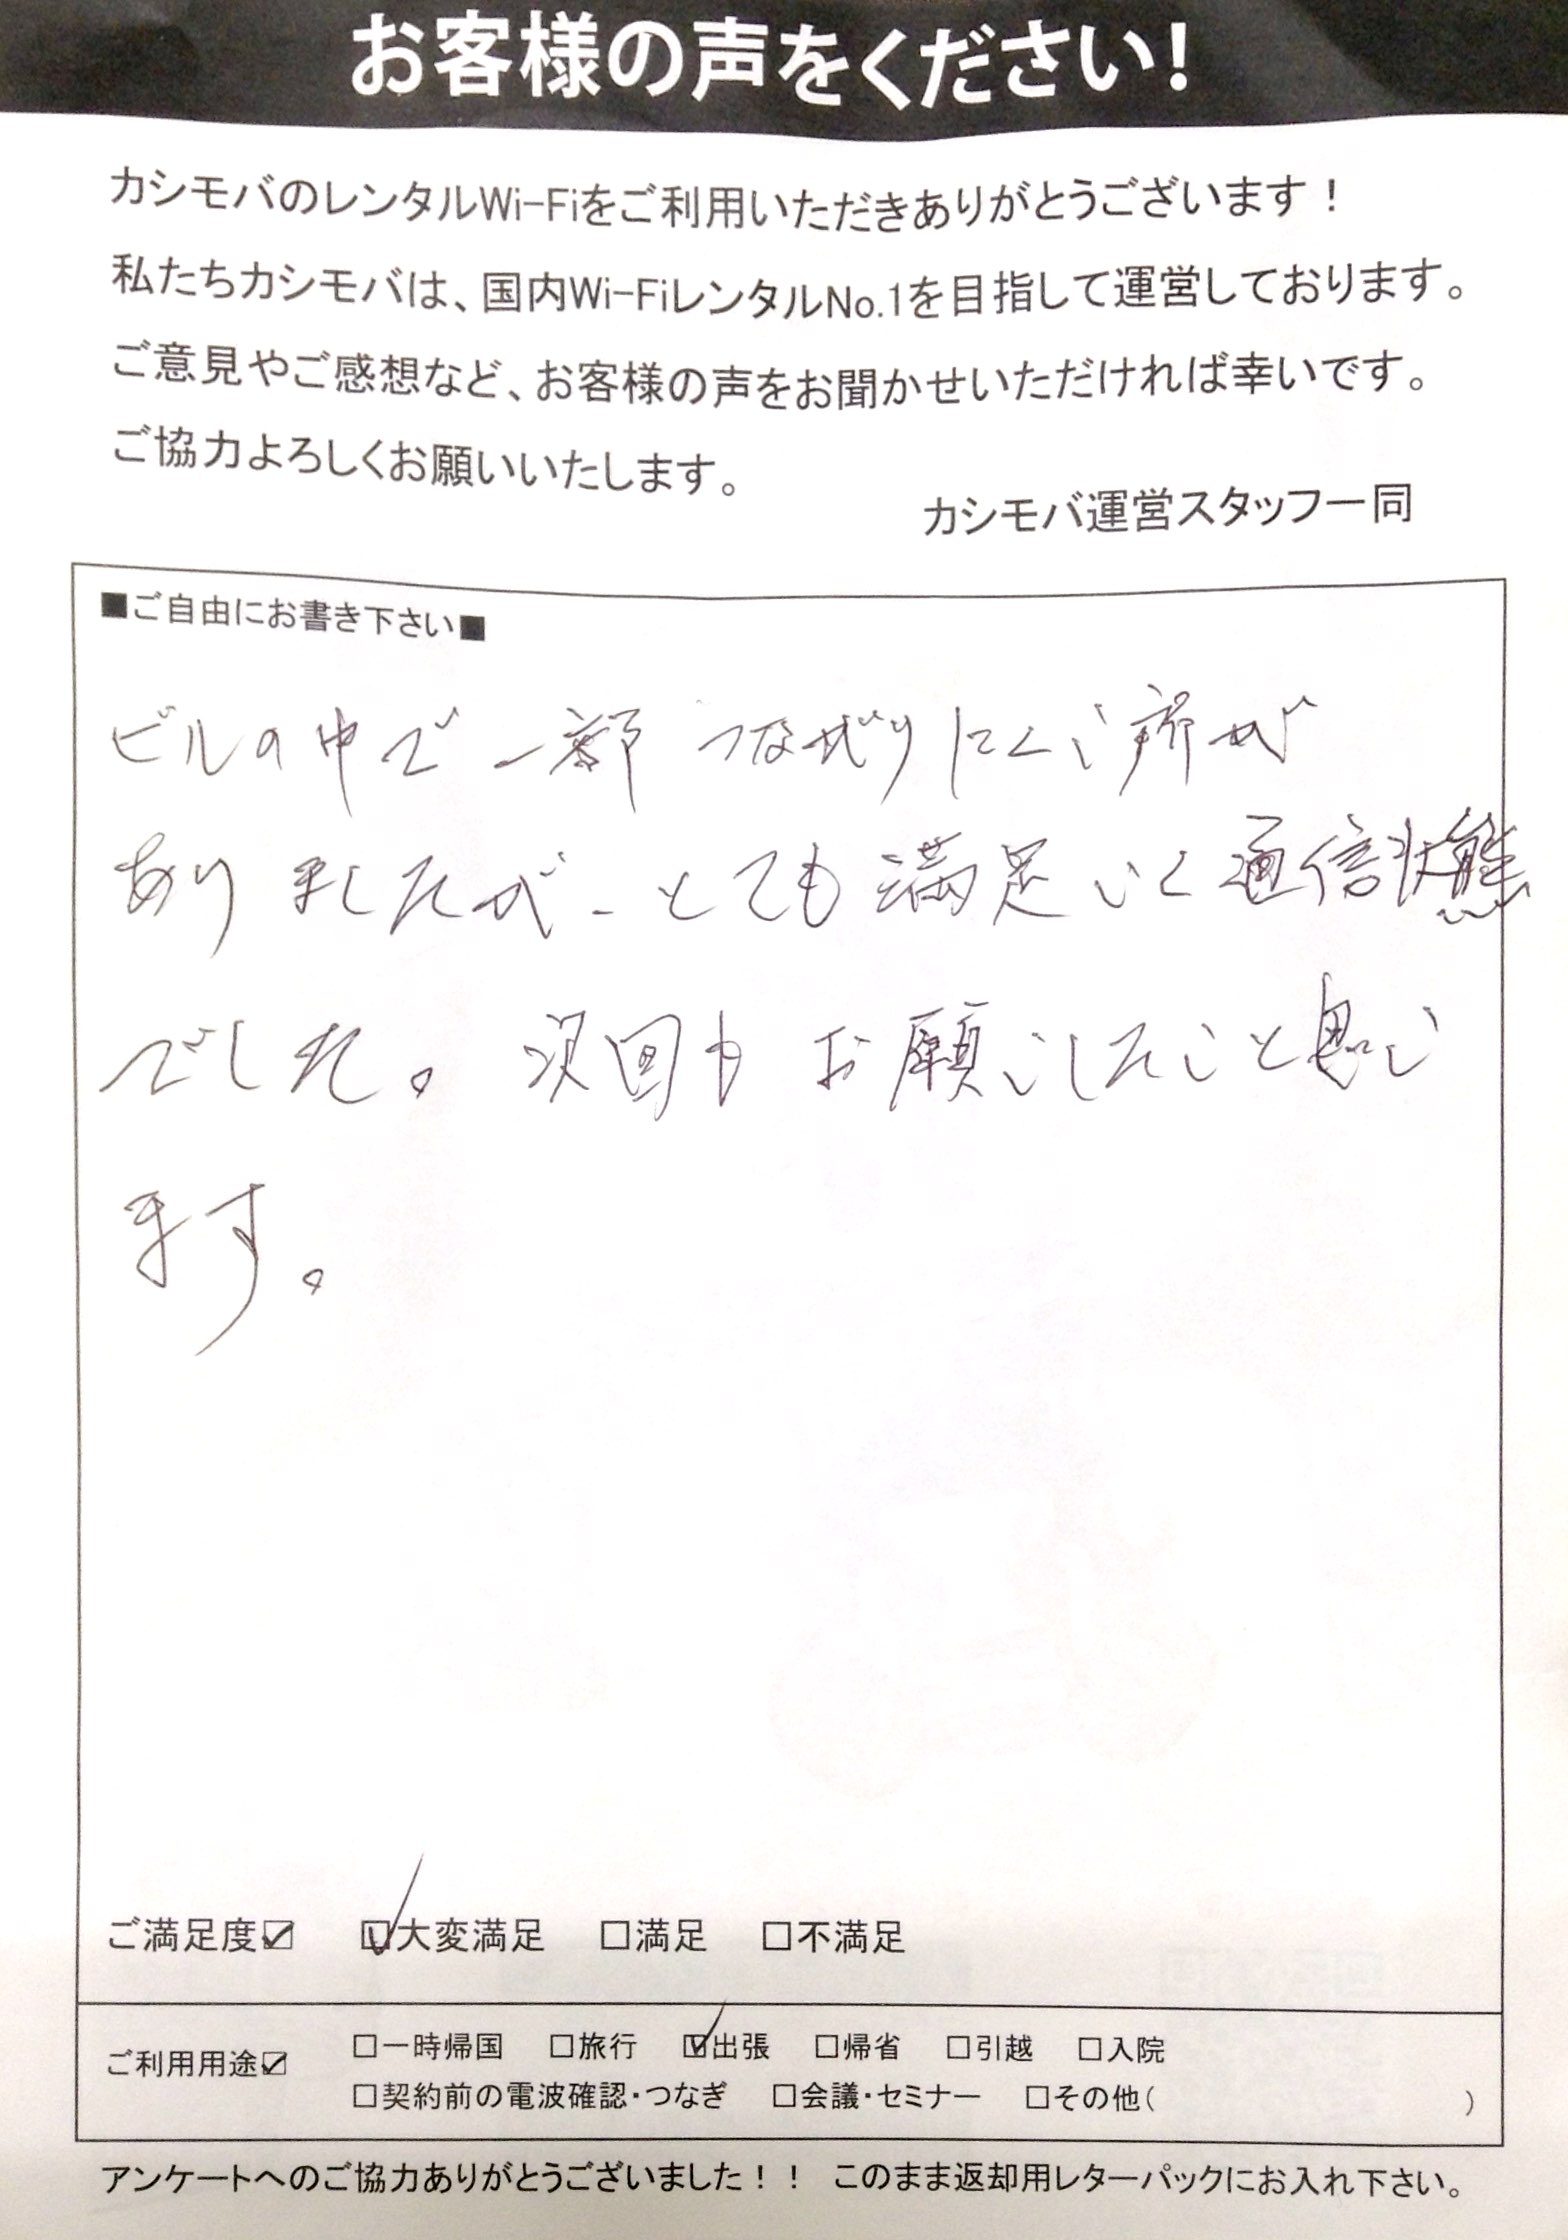 お客様の声をください!
カシモバのレンタルWi-Fiをご利用いただきありがとうございます！
私たちカシモバは、国内Wi-FiレンタルNo.1を目指して運営しております。
ご意見やご感想など、お客様の声をお聞かせいただければ幸いです。
ご協力よろしくお願いいたします。
カシモバ運営スタッフ一同
■ご自由にお書き下さい■
ビルの中で一部つながりにくい所が
ありましたが、とても満足いく通信状態
でした。次回もお願いしたいと思い
ます。
ご満足度☑ ☑大変満足 □満足 □不満足
ご利用用途☑ □一時帰国 □旅行 ☑出張 □帰省 □引越 □入院
□契約前の電波確認・つなぎ □会議・セミナー □その他( )
アンケートへのご協力ありがとうございました！！ このまま返却用レターパックにお入れ下さい。